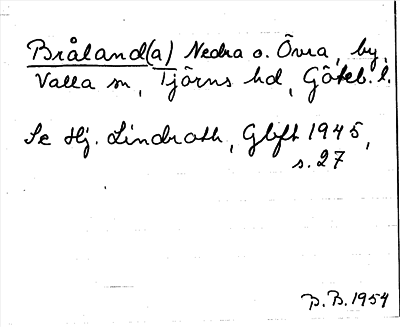 Bråland(a) Nedra o. Övra, by,
Valla sn, Tjörns hd, Göteb. l.
Se Hj. Lindroth, GBFT 1945,
s. 27
P.B. 1954